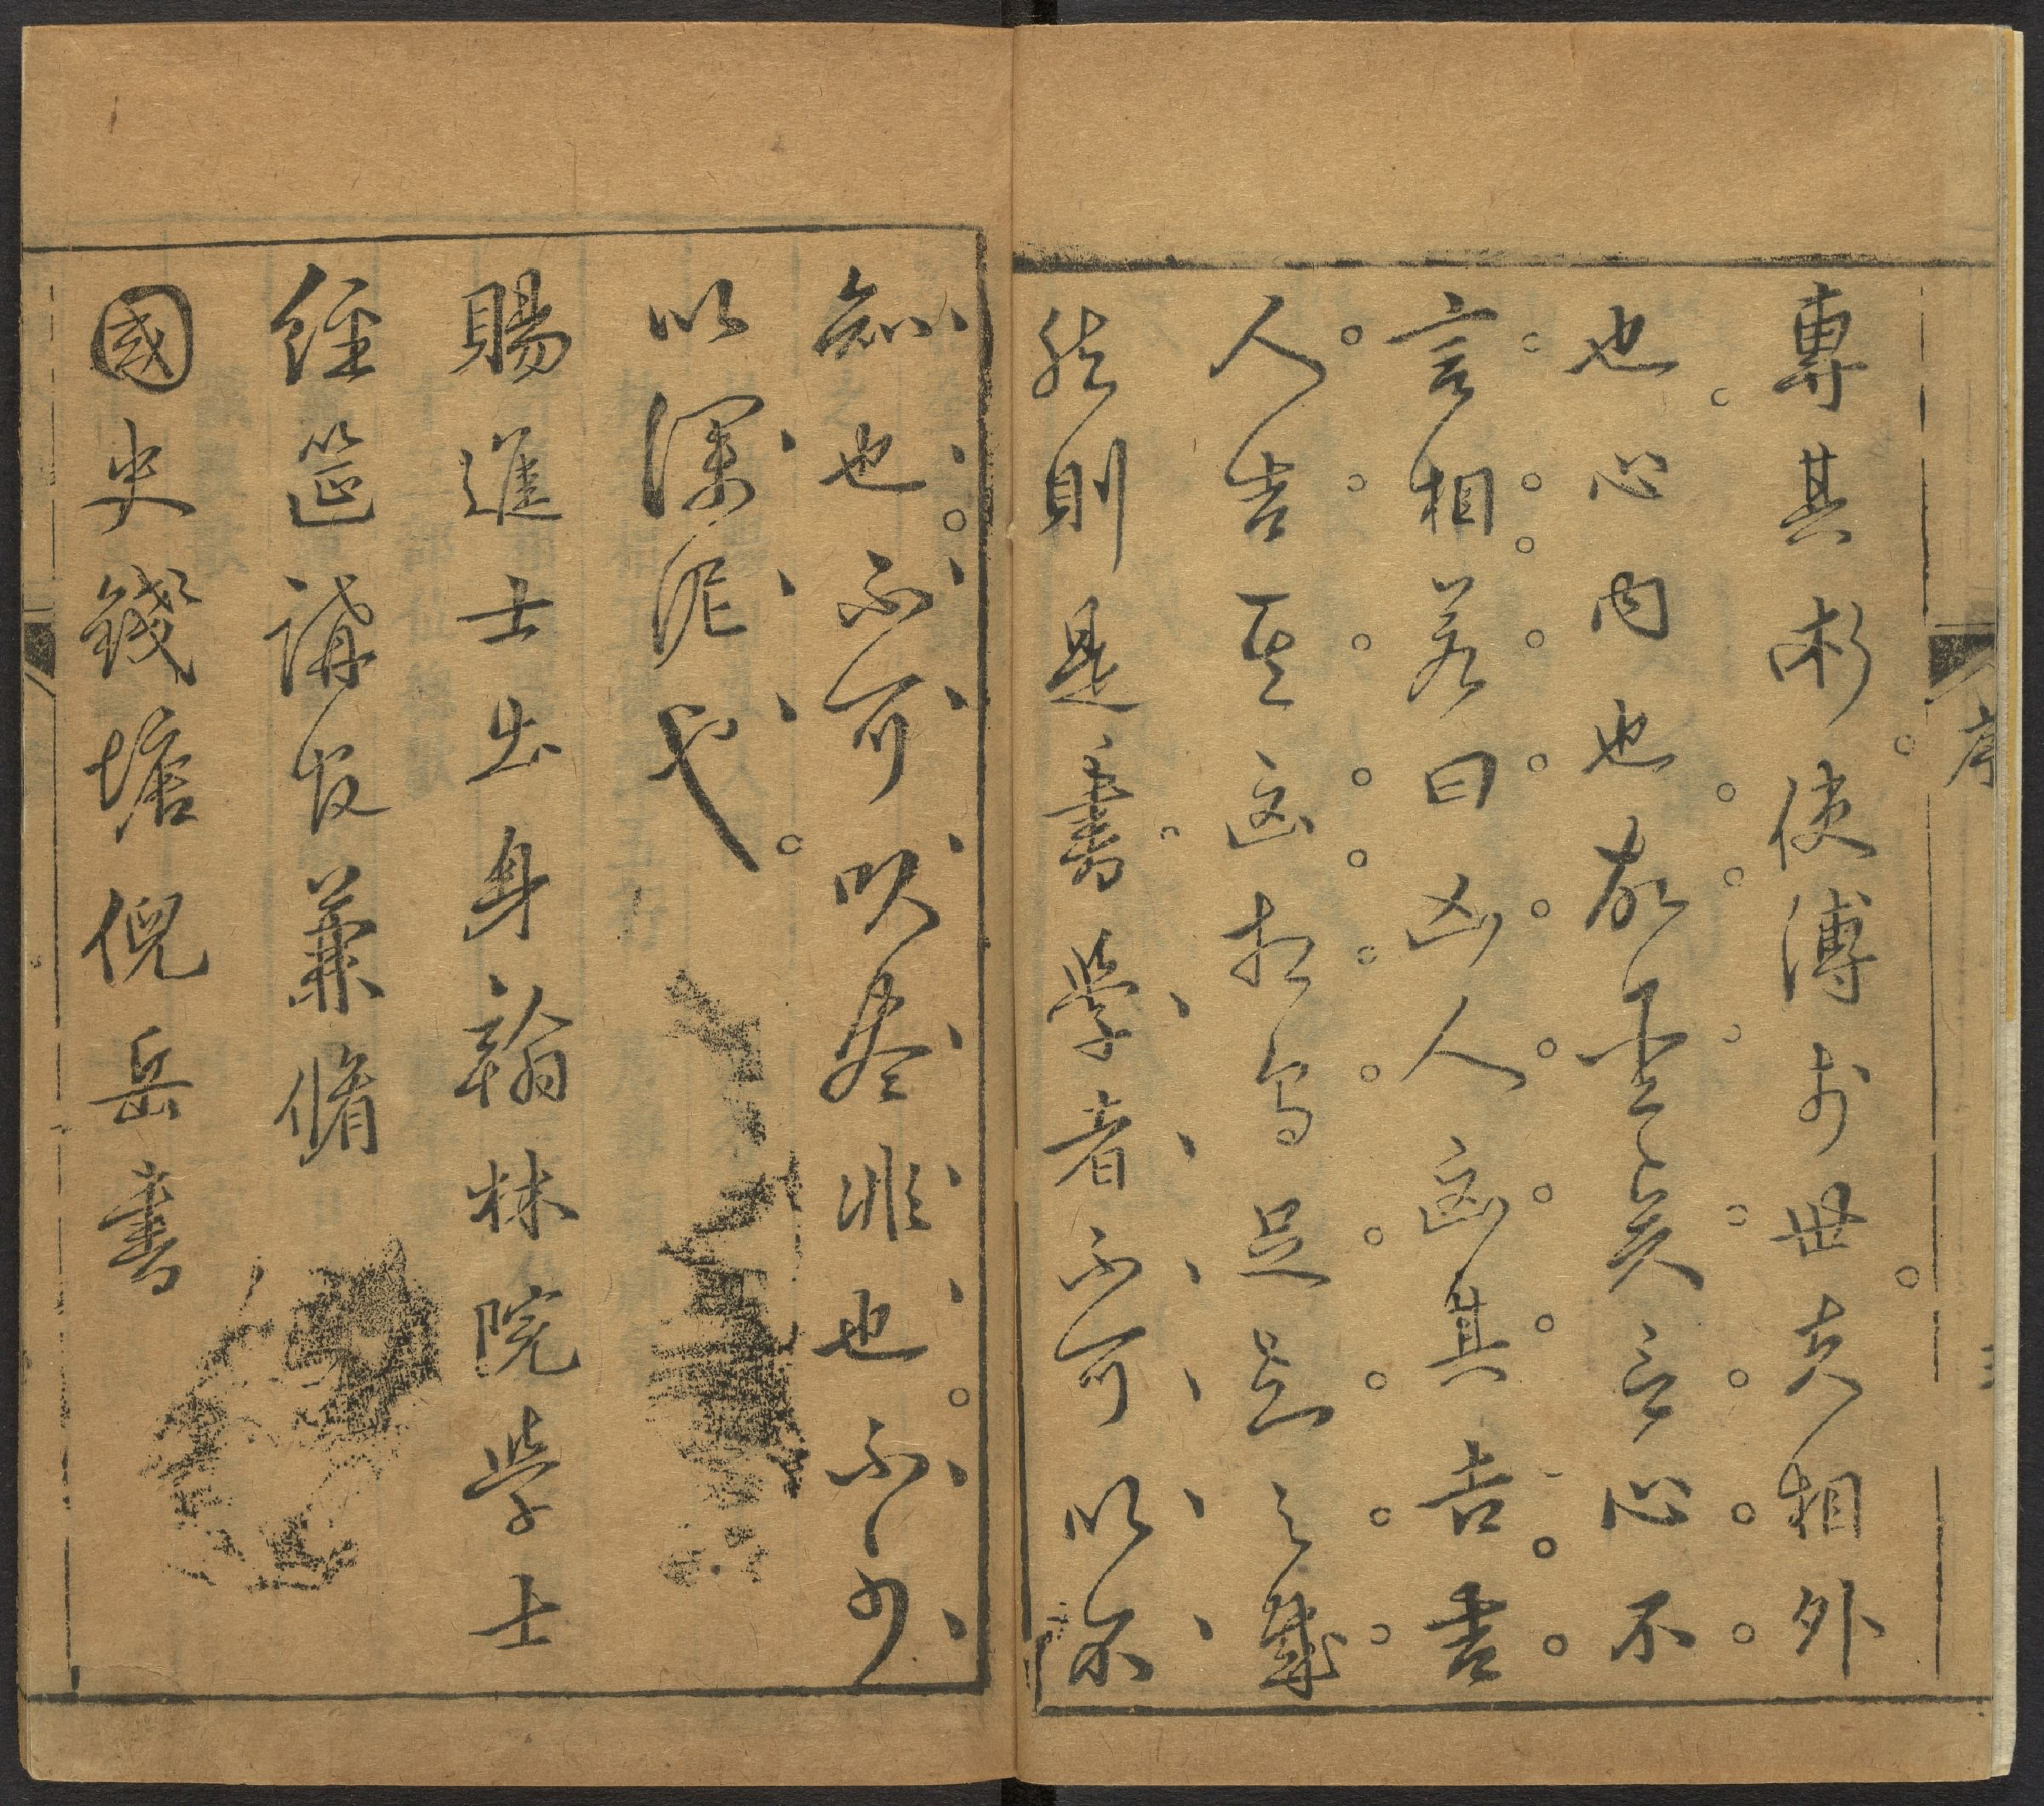 專其術使傳於世夫相外
也心内也故矣言心不
言相若曰凶人凶其吉吉
人吉其凶相烏足之哉
然則是書學者不可以不
序
知也不可以盡非也不可
以深泥也
賜進士出身翰林院學士
經筵講官兼脩
國史錢塘倪岳書